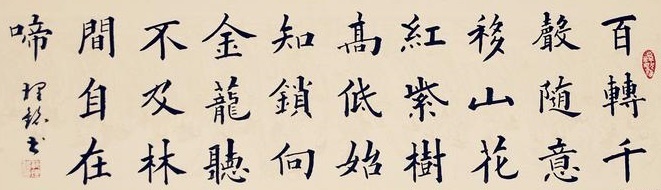 百轉千
聲隨意
移山花
紅紫樹
髙低始
知鎖向
金籠聽
不及林
間自在
啼
書